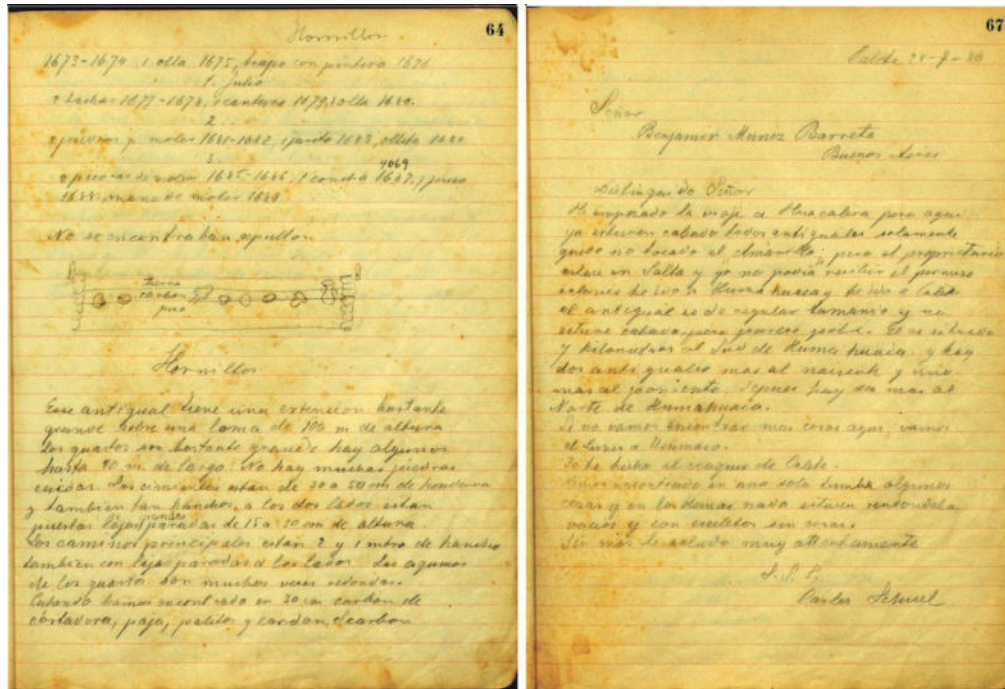 64
Hornillos
1673-1674, 1 olla 1675, trapo con pintura 1676
1. Julio
1677-1678, 1679, olla 1680.
2.
y moler 1681-1682, 1 jarrito 1683, ollita 1684
3.
4069
1685-1686, 1 1687,
1688, mano de moler 1689
No se encontraban sepultos
tierra
carbon
Hornillos.
Ese antigual tiene una extencion bastante
grande sobre una loma de 100 m de altura.
Los quartos son bastante grande hay algunos
hasta 20 m. de largo. No hay muchas piedras
Los cimientos estan de 30 a 50 cm de hondura
y tambien tan hanchos, a los dos lados estan
puertas lajas grandes paradas de 15 a 50 cm de altura.
Los caminos principales están 2 y 1 metro de hancho
tambien con lajas paradas a los lados. Las
de los quartos son muchas veces redondas.
Cabando hamos encontrado en 30 cm carbon de
cortadera, paja, palitos y cardon, el carbon
67
Calete
Señor
Benjamin Munez Barreto
Buenos Aires
Distinguido Señor
He empezado la viaje a Huacalera pero aqui
ya estuven cabado todos antiguales solamente
quedo no tocado el Amarillo; pero el proprietario
estuve en Salta y yo no podia recibir el permiso
entonces he ido a Humahuaca y he ido a Calete
el antigual es de regular tamanio y no
estuve cabado, pero parece pobre. El es situado
7 Kilometros al Sud de Humahuaca y hay
dos antiguales mas al naciente y uno
mas al poniente. Depues hay dos mas al
Norte de Humahuaca.
Si no vamos encontrar mas cosas aqui, vamos
de a
Yo he hecho el croquis de Calete.
Hemos encontrado en una sola tumba algunos
cosas y en los demas nada estuven
vacios y con esceletos sin cosas.
Sin mas le saludo muy attentamente
S.S.S.
Carlos Schuel